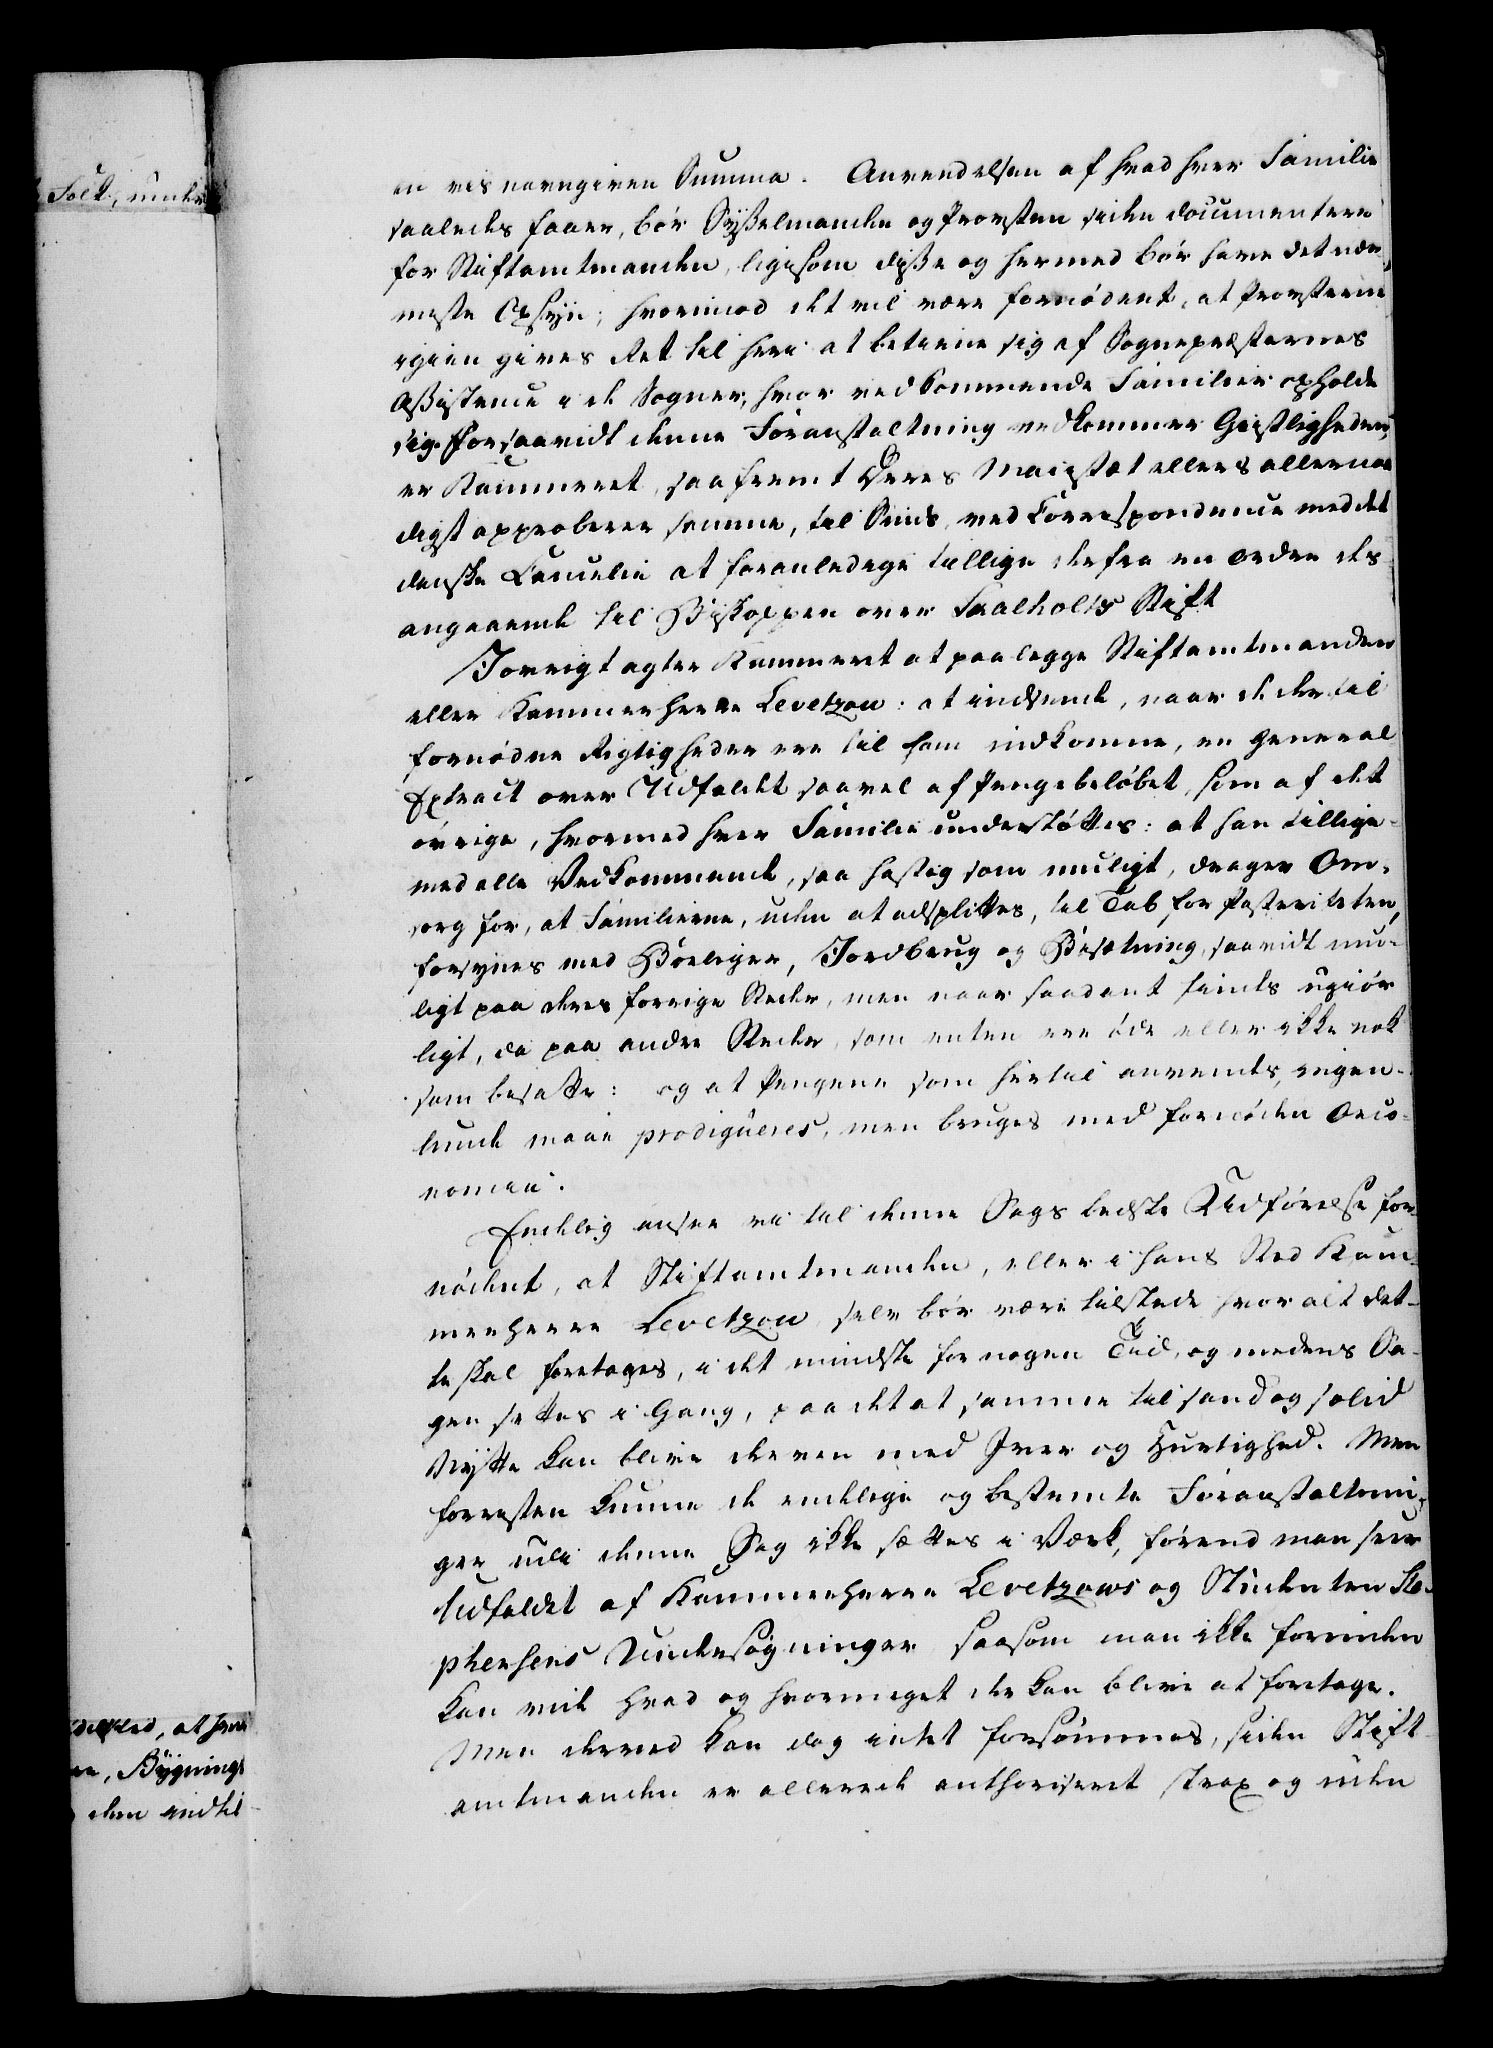 Folk, under
en vis navngiven Summa. Anvendelsen af hvad hver Familie
saaledes faaer, bør Sysselmanden og Provsten siden documentere
for Stiftamtmanden, ligesom disse og hermed bør have det nær-
meste Opsyn; hvorimod det vil være fornødent, at Provsterne
igien gives Ret til heri at betiene sig af Sognepræsternes
Assistence i de Sogner, hvor vedkommende Familier opholde
sig. Forsaavidt denne Foranstaltning vedkommer Geistligheden,
er Kammeret, saafremt Deres Majestæt ellers allernaa-
digst approberer samme, til Sinds ved Correspondence med det
danske Cancelie at foranledige tillige derfra en Ordre des-
angaaende til Biskoppen over Skalholts Stift
Jøvrigt agter Kammeret at paalegge Stiftamtmanden
eller Kammerherre Levetzou: at indsende, naar de dertil
fornødne Rigtigheder ere til ham indkomne, en General-
Extract over Udfaldet saavel af Pengebeløbet, som af det
øvrige, hvormed hver Familie understøttes: at han tillige-
med alle Vedkommende, saa hastig som muligt, drager Om-
sorg for, at Familierne, uden at adsplittes, til Tab for Posteriteten,
forsynes med Boeliger, Jordbrug og Besætning, saavidt mue-
ligt paa deres forrige Steder, men naar saadant findes ugiør-
ligt, da paa andre Steder, som enten ere øde eller ikke nok
som besatte: og at Pengene som hertil anvendes, ingen-
lunde maae prodigueres, men bruges med fornøden Oeco-
nomie.
Endelig ansee vi til denne Sags bedste Udførelse for-
nødent, at Stiftamtmanden, eller i hans Sted Kam-
merherre Levetzou selv bør være tilstede hvor alt det-
te skal foretages, i det mindste for nogen Tiid, og medens Sa-
gen settes i Gang, paa det at samme til sand og solid
Nytte kan blive dreven med Iver og Hurtighed. Men
forresten kunne de endelige og bestemte Foranstaltnin-
ger udi denne Sag ikke sættes i Værk, førend man seer
Udfaldet af Kammerherre Levetzows og Studenten Ste-
phensens Undersøgninger saasom man ikke forinden
kan vide hvad og hvormeget der kan blive at foretage.
Men derved kan dog intet forsømmes, siden Stift-
amtmanden er allerede authoriseret strax og uden
at hver
Bygning
dem indtil